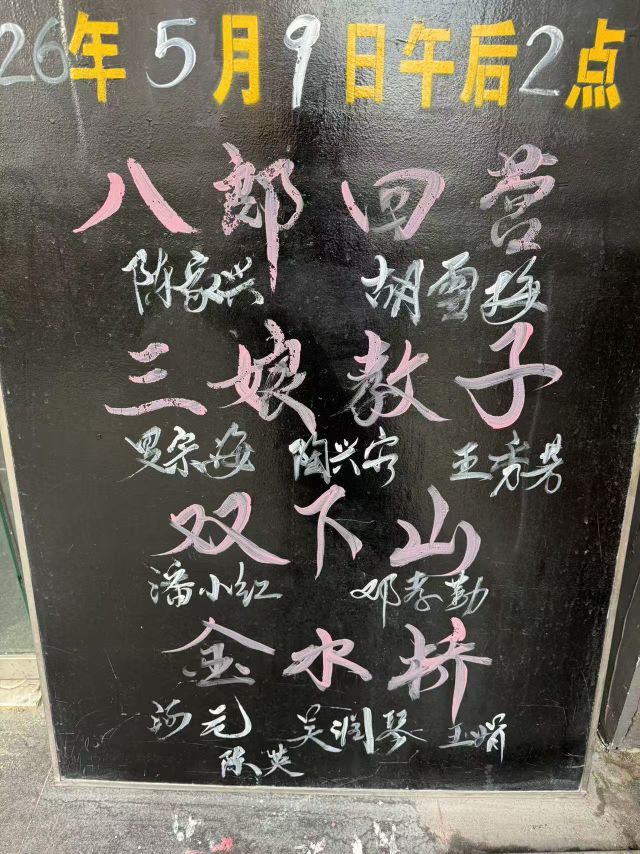 26年5月9日午后2点
八郎回营
陈家兴 胡雪梅
三娘教子
罗宗海 陶兴容 王秀芳
双下山
潘小红 邓孝勤
金水桥
元 吴润琴 王娟
陈英